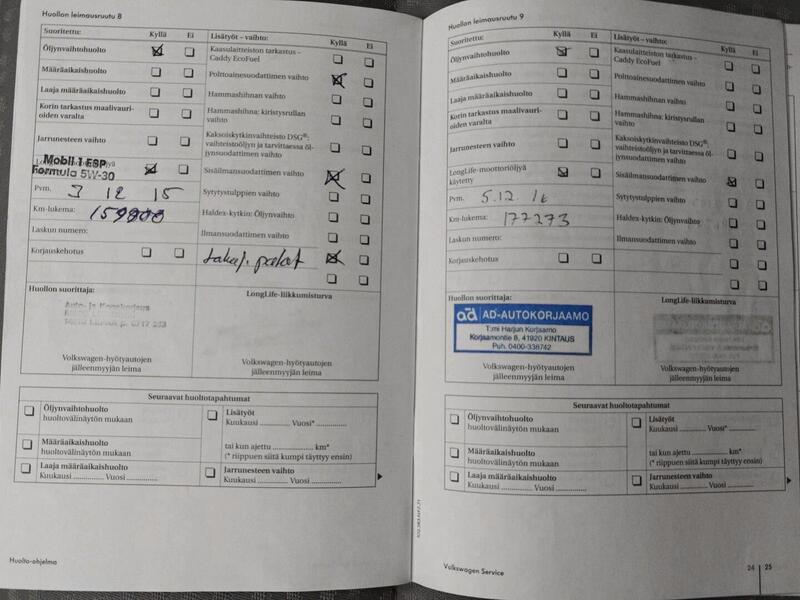 Huollon leimausruutu 8
Suoritettu: Kyllä Ei Lisätyöt – vaihto: Kyllä Ei
Öljynvaihtohuolto
Kaasulaitteiston tarkastus – Caddy EcoFuel
Määräaikaishuolto
Polttoainesuodattimen vaihto
Laaja määräaikaishuolto
Hammashihnan vaihto
Korin tarkastus maalivauri-
oiden varalta
Hammashihna: kiristysrullan vaihto
Jarrunesteen vaihto
Kaksoiskytkinvaihteisto DSG®:
vaihteistoöljyn ja tarvittaessa öl-
jynsuodattimen vaihto
Mobil 1 ESP
Formula 5W-30
Sisäilmansuodattimen vaihto
Pvm. 3 12 15
Sytytystulppien vaihto
Km-lukema:
Haldex-kytkin: Öljynvaihto
Laskun numero:
Ilmansuodattimen vaihto
Korjauskehotus
takaj. palat
Huollon suorittaja:
LongLife-liikkumisturva
Volkswagen-hyötyautojen
jälleenmyyjän leima
Volkswagen-hyötyautojen
jälleenmyyjän leima
Seuraavat huoltotapahtumat
Öljynvaihtohuolto
huoltovälinäytön mukaan
Lisätyöt
Kuukausi ............ Vuosi* ............
Määräaikaishuolto
huoltovälinäytön mukaan
tai kun ajettu ............ km*
(* riippuen siitä kumpi täyttyy ensin)
Laaja määräaikaishuolto
Kuukausi ............ Vuosi ............
Jarrunesteen vaihto
Kuukausi ............ Vuosi ............
Huolto-ohjelma
Huollon leimausruutu 9
Suoritettu: Kyllä Ei Lisätyöt – vaihto: Kyllä Ei
Öljynvaihtohuolto
Kaasulaitteiston tarkastus –
Caddy EcoFuel
Määräaikaishuolto
Polttoainesuodattimen vaihto
Laaja määräaikaishuolto
Hammashihnan vaihto
Korin tarkastus maalivauri-
oiden varalta
Hammashihna: kiristysrullan vaihto
Jarrunesteen vaihto
Kaksoiskytkinvaihteisto DSG®:
vaihteistoöljyn ja tarvittaessa öl-
jynsuodattimen vaihto
LongLife-moottoriöljyä
käytetty
Sisäilmansuodattimen vaihto
Pvm. 5.12.16
Sytytystulppien vaihto
Km-lukema: 177273
Haldex-kytkin: Öljynvaihto
Laskun numero:
Ilmansuodattimen vaihto
Korjauskehotus
Huollon suorittaja:
LongLife-liikkumisturva
ad AD-AUTOKORJAAMO
T:mi Harjun Korjaamo
Korjaamontie 8, 41920 KINTAUS
Puh. 0400-338742
Volkswagen-hyötyautojen
jälleenmyyjän leima
Volkswagen-hyötyautojen
jälleenmyyjän leima
Seuraavat huoltotapahtumat
Öljynvaihtohuolto
huoltovälinäytön mukaan
Lisätyöt
Kuukausi ............ Vuosi* ............
Määräaikaishuolto
huoltovälinäytön mukaan
tai kun ajettu ............ km*
(* riippuen siitä kumpi täyttyy ensin)
Laaja määräaikaishuolto
Kuukausi ............ Vuosi ............
Jarrunesteen vaihto
Kuukausi ............ Vuosi ............
Volkswagen Service
24 25